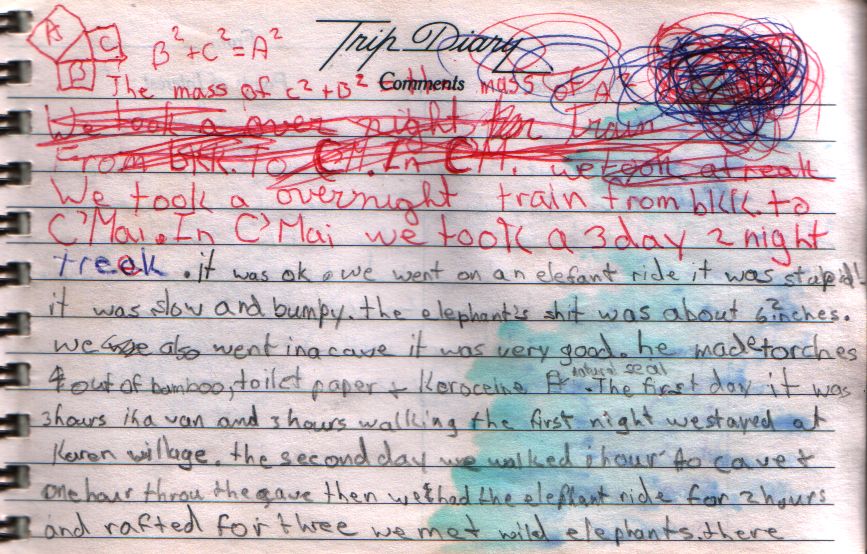 A
C
B
B²+C²=A²
Trip Diary
Comments
The mass of C²+B² mass of A²
We took a over night, train
From bkk. To CM. In CM. we took a treak
We took a overnight train from bkk. to
C'Mai. In C'Mai we took a 3 day 2 night
treek. it was ok. we went on an elefant ride it was stupid!
it was slow and bumpy. the elephant's shit was about 6²inches.
we also went in a cave it was very good. he made torches
4 out of bamboo, toilet paper + Keroceine natural seal. The first day it was
3 hours in a van and 3 hours walking the first night we stayed at
Karen willage. the second day we walked 1 hour to cave +
one hour throu the cave then we had the elephant ride for 2 hours
and rafted for three we met wild elephants. there